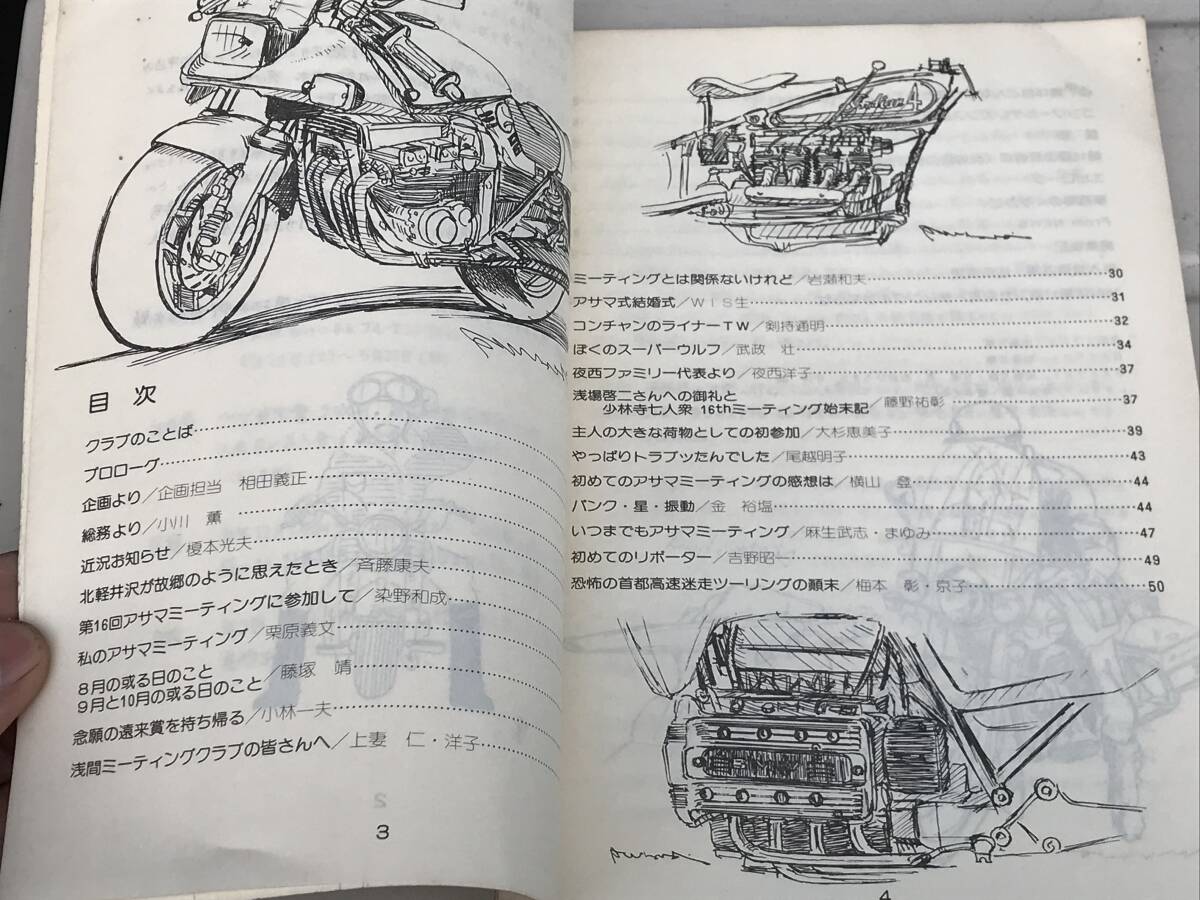 目次
クラブのことば
プロローグ
企画より／企画担当 相田義正
総務より／小川 薫
近況お知らせ／榎本光夫
北軽井沢が故郷のように思えたとき／斉藤康夫
第16回アサマミーティングに参加して／染野和成
私のアサマミーティング／栗原義文
８月の或る日のこと
９月と10月の或る日のこと／藤塚 靖
念願の遠来賞を持ち帰る／小林一夫
浅間ミーティングクラブの皆さんへ／上妻 仁・洋子
3
4
ミーティングとは関係ないけれど／岩瀬和夫 30
アサマ式結婚式／ＷＩＳ生 31
コンチャンのライナーＴＷ／剣持通明 32
ぼくのスーパーウルフ／武政 壮 34
夜西ファミリー代表より／夜西洋子 37
浅場啓二さんへの御礼と
少林寺七人衆 16thミーティング始末記／藤野祐彰 37
主人の大きな荷物としての初参加／大杉恵美子 39
やっぱりトラブッたんでした／尾越明子 43
初めてのアサマミーティングの感想は／横山 登 44
バンク・星・振動／金 裕塩 44
いつまでもアサマミーティング／麻生武志・まゆみ 47
初めてのリポーター／吉野昭一 49
恐怖の首都高速迷走ツーリングの顛末／梅本 彰・京子 50
4